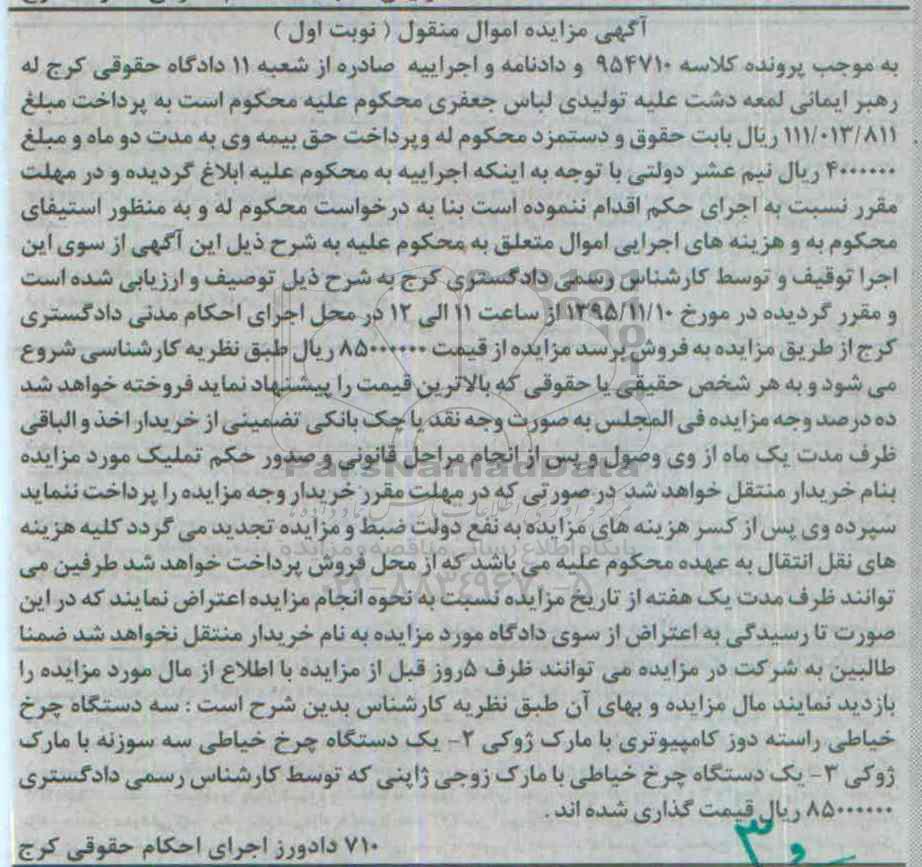 آگهی مزایده اموال منقول ( نوبت اول )
به موجب پرونده کلاسه ۹۵۴۷۱۰ و دادنامه و اجراییه صادره از شعبه ۱۱ دادگاه حقوقی کرج له
رهبر ایمانی لمعه دشت علیه تولیدی لباس جعفری محکوم علیه محکوم است به پرداخت مبلغ
۱۱۱/۰۱۳/۸۱۱ ریال بابت حقوق و دستمزد محکوم له وپرداخت حق بیمه وی به مدت دو ماه و مبلغ
۴۰۰۰۰۰۰ ریال نیم عشر دولتی با توجه به اینکه اجراییه به محکوم علیه ابلاغ گردیده و در مهلت
مقرر نسبت به اجرای حکم اقدام ننموده است بنا به درخواست محکوم له و به منظور استیفای
محکوم به و هزینه های اجرایی اموال متعلق به محکوم علیه به شرح ذیل این آگهی از سوی این
اجرا توقیف و توسط کارشناس رسمی دادگستری کرج به شرح ذیل توصیف و ارزیابی شده است
و مقرر گردیده در مورخ ۱۳۹۵/۱۱/۱۰ از ساعت ۱۱ الی ۱۲ در محل اجرای احکام مدنی دادگستری
کرج از طریق مزایده به فروش برسد مزایده از قیمت ۸۵۰۰۰۰۰۰ ریال طبق نظریه کارشناسی شروع
می شود و به هر شخص حقیقی یا حقوقی که بالاترین قیمت را پیشنهاد نماید فروخته خواهد شد
ده درصد وجه مزایده فی المجلس به صورت وجه نقد یا چک بانکی تضمینی از خریدار اخذ و الباقی
ظرف مدت یک ماه از وی وصول و پس از انجام مراحل قانونی و صدور حکم تملیک مورد مزایده
بنام خریدار منتقل خواهد شد در صورتی که در مهلت مقرر خریدار وجه مزایده را پرداخت ننماید
سپرده وی پس از کسر هزینه های مزایده به نفع دولت ضبط و مزایده تجدید می گردد کلیه هزینه
های نقل انتقال به عهده محکوم علیه می باشد که از محل فروش پرداخت خواهد شد طرفین می
توانند ظرف مدت یک هفته از تاریخ مزایده نسبت به نحوه انجام مزایده اعتراض نمایند که در این
صورت تا رسیدگی به اعتراض از سوی دادگاه مورد مزایده به نام خریدار منتقل نخواهد شد ضمنا
طالبین به شرکت در مزایده می توانند ظرف ۵روز قبل از مزایده با اطلاع از مال مورد مزایده را
بازدید نمایند مال مزایده و بهای آن طبق نظریه کارشناس بدین شرح است : سه دستگاه چرخ
خیاطی راسته دوز کامپیوتری با مارک ژوکی ۲- یک دستگاه چرخ خیاطی سه سوزنه با مارک
ژوکی ۳- یک دستگاه چرخ خیاطی با مارک زوجی ژاپنی که توسط کارشناس رسمی دادگستری
۸۵۰۰۰۰۰۰ ریال قیمت گذاری شده اند .
۷۱۰ دادورز اجرای احکام حقوقی کرج
ParsNamadData
پایگاه اطلاع رسانی مناقصه و مزایده